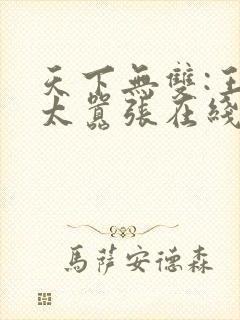 天下無雙:王
太囂張在綫
馬薩安德森